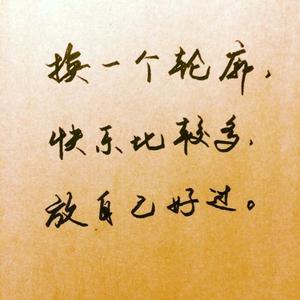 换一个轮廓，
快乐比较多，
放自己好过。